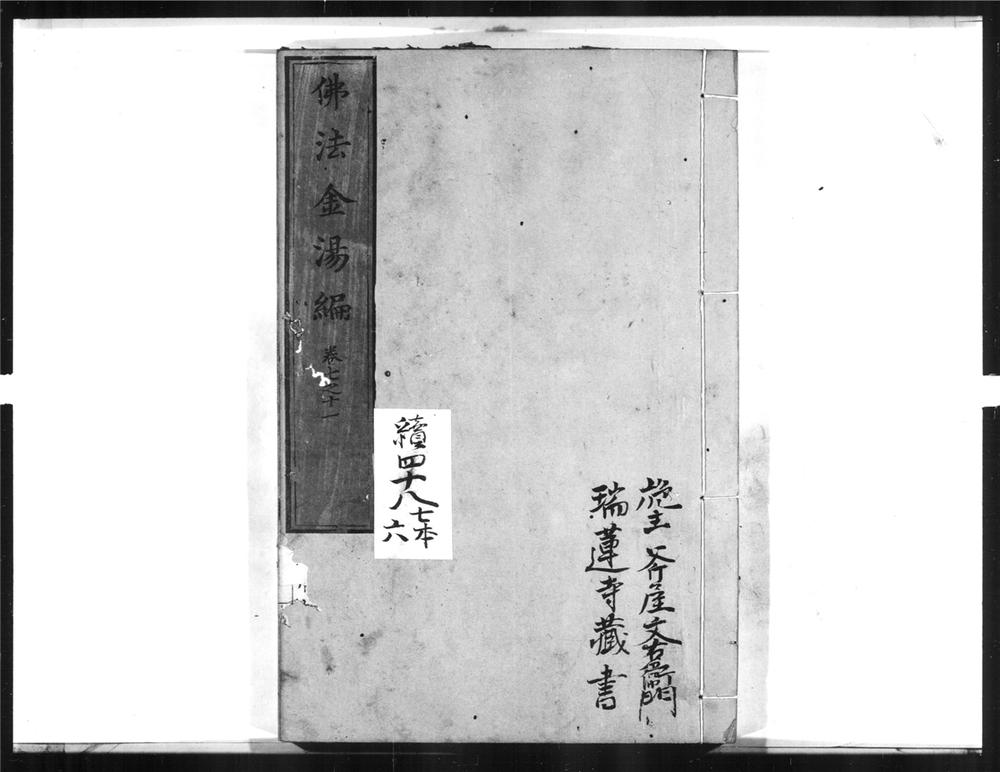 施主 斧屋文右衛門
瑞蓮寺藏書
續四十八
七本
六
佛法金湯編 卷七之十一